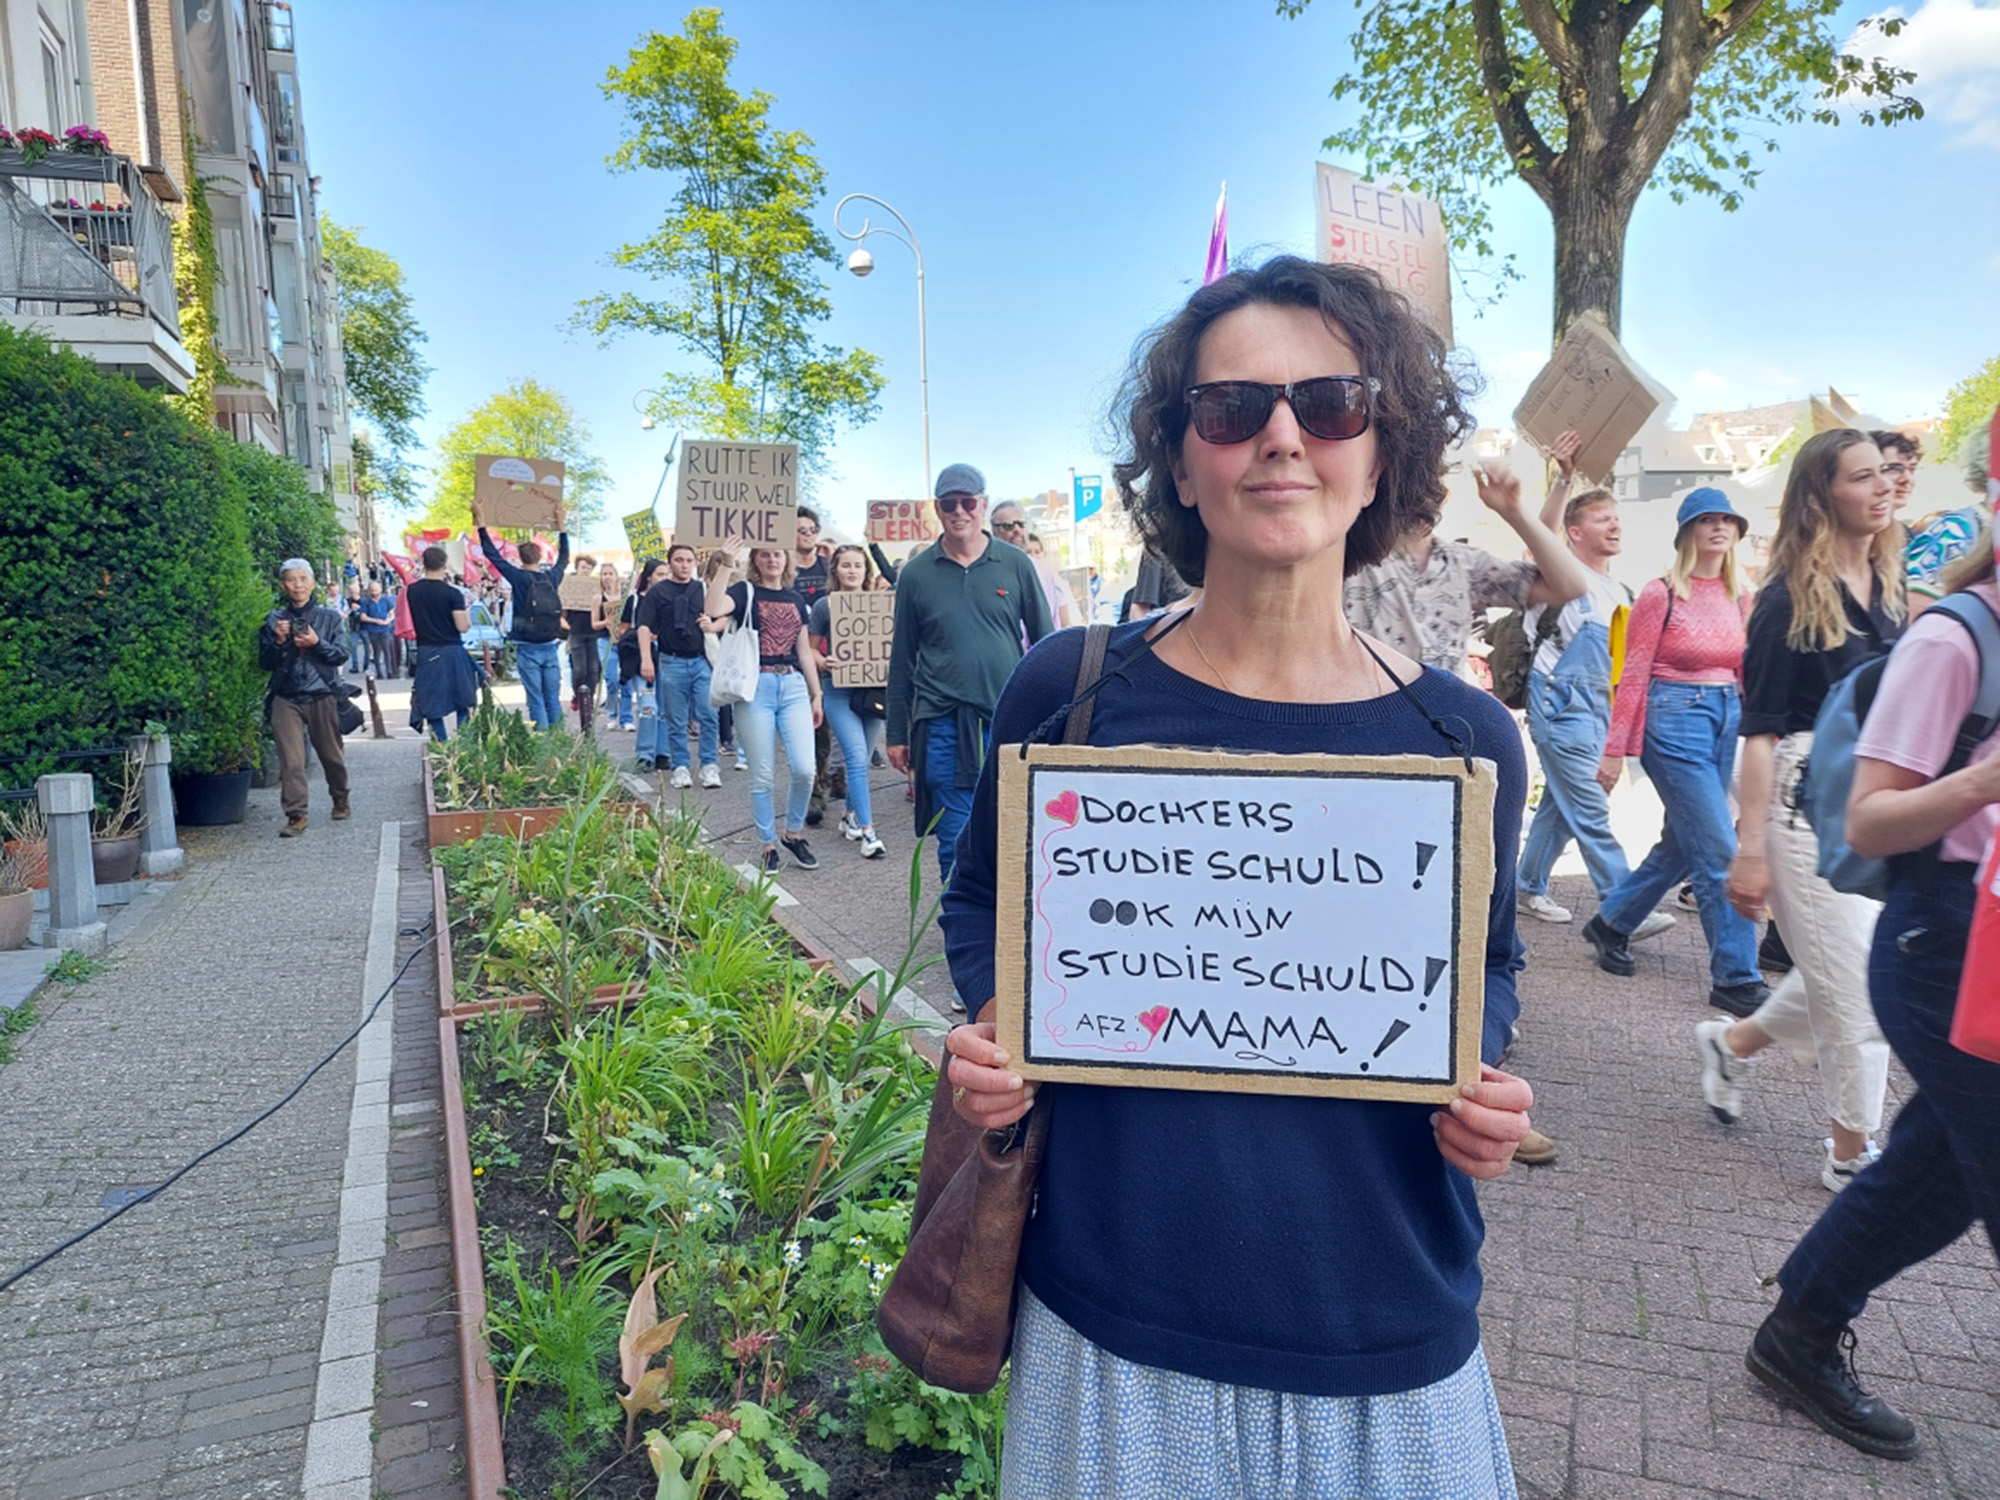 LEEN
STELSEL
MATIG
RUTTE, IK
STUUR WEL
TIKKIE
STOP
LEENS
P
NIET
GOED
GELD
TERU
DOCHTERS
STUDIESCHULD!
OOK MIJN
STUDIESCHULD!
AFZ: MAMA!